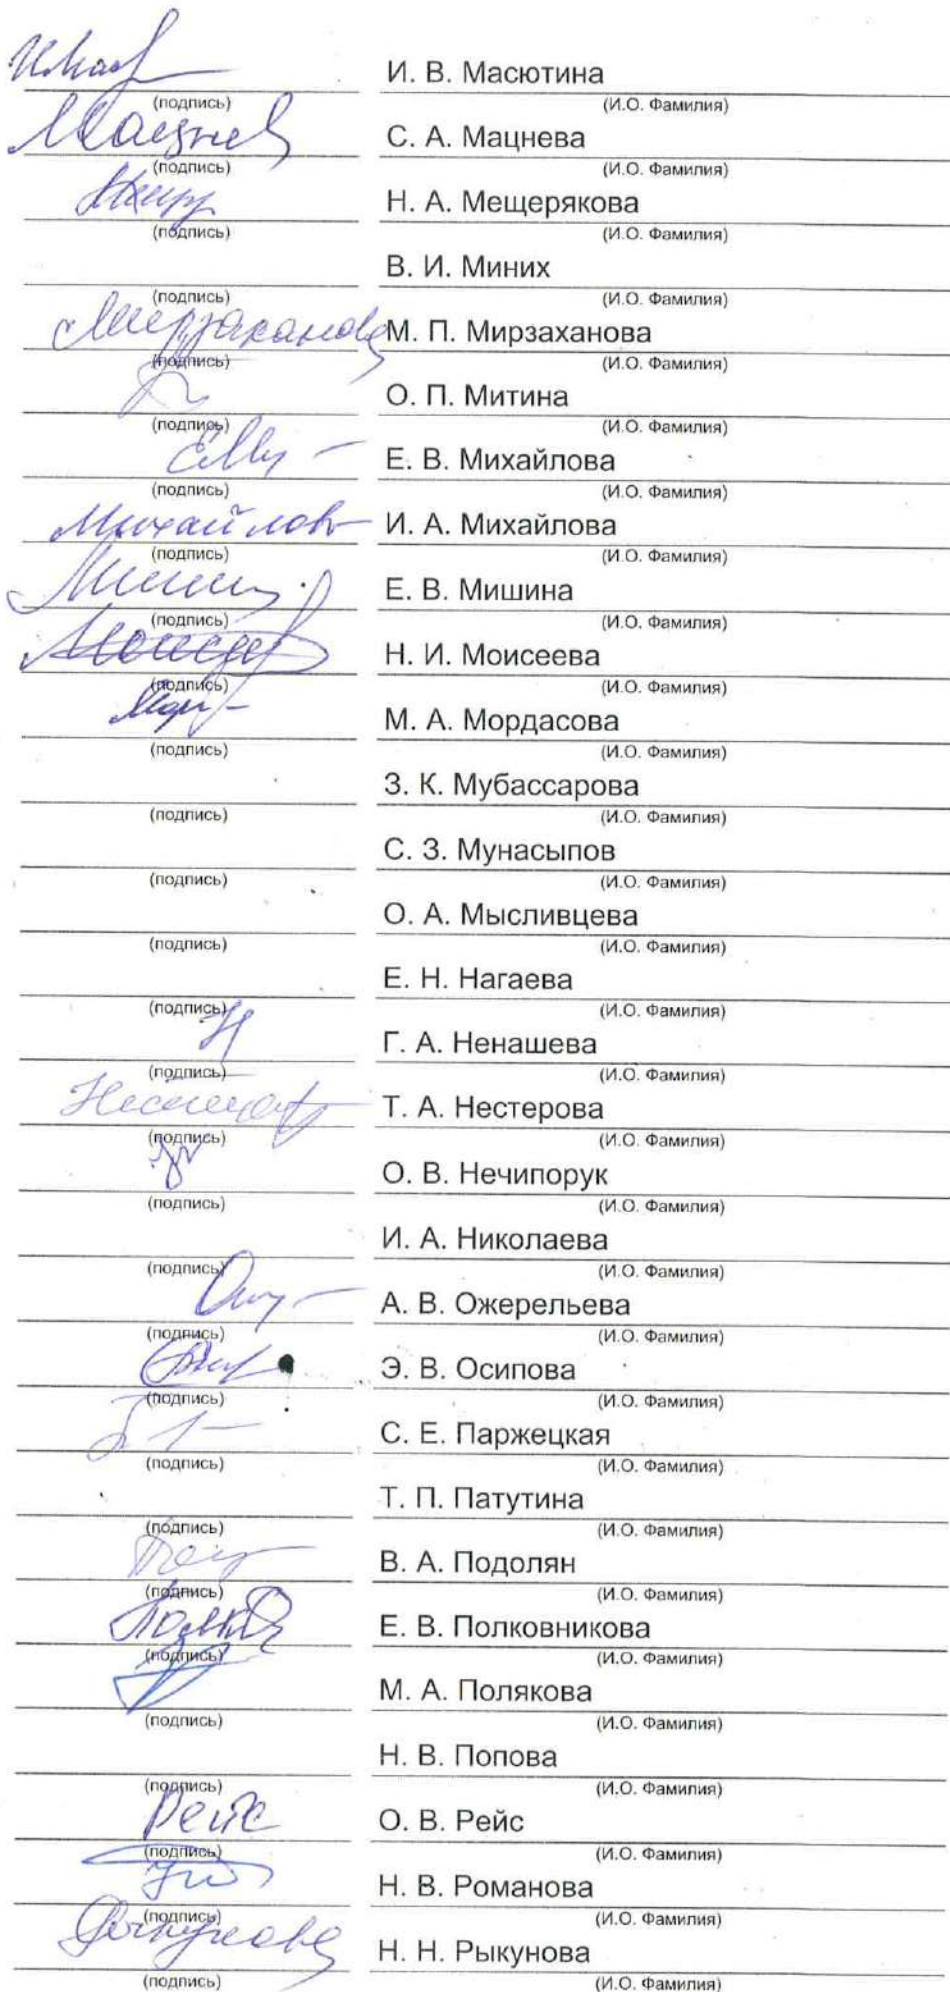 И. В. Масютина
(подпись) (И.О. Фамилия)
Мацнев С. А. Мацнева
(подпись) (И.О. Фамилия)
Н. А. Мещерякова
(подпись) (И.О. Фамилия)
В. И. Миних
(подпись) (И.О. Фамилия)
Мирзаханова М. П. Мирзаханова
(подпись) (И.О. Фамилия)
О. П. Митина
(подпись) (И.О. Фамилия)
Е. В. Михайлова
(подпись) (И.О. Фамилия)
Михайлов И. А. Михайлова
(подпись) (И.О. Фамилия)
Е. В. Мишина
(подпись) (И.О. Фамилия)
Н. И. Моисеева
(подпись) (И.О. Фамилия)
М. А. Мордасова
(подпись) (И.О. Фамилия)
З. К. Мубассарова
(подпись) (И.О. Фамилия)
С. З. Мунасыпов
(подпись) (И.О. Фамилия)
О. А. Мысливцева
(подпись) (И.О. Фамилия)
Е. Н. Нагаева
(подпись) (И.О. Фамилия)
Г. А. Ненашева
(подпись) (И.О. Фамилия)
Т. А. Нестерова
(подпись) (И.О. Фамилия)
О. В. Нечипорук
(подпись) (И.О. Фамилия)
И. А. Николаева
(подпись) (И.О. Фамилия)
А. В. Ожерельева
(подпись) (И.О. Фамилия)
Э. В. Осипова
(подпись) (И.О. Фамилия)
С. Е. Паржецкая
(подпись) (И.О. Фамилия)
Т. П. Патутина
(подпись) (И.О. Фамилия)
В. А. Подолян
(подпись) (И.О. Фамилия)
Е. В. Полковникова
(подпись) (И.О. Фамилия)
М. А. Полякова
(подпись) (И.О. Фамилия)
Н. В. Попова
(подпись) (И.О. Фамилия)
Рейс О. В. Рейс
(подпись) (И.О. Фамилия)
Н. В. Романова
(подпись) (И.О. Фамилия)
Н. Н. Рыкунова
(подпись) (И.О. Фамилия)